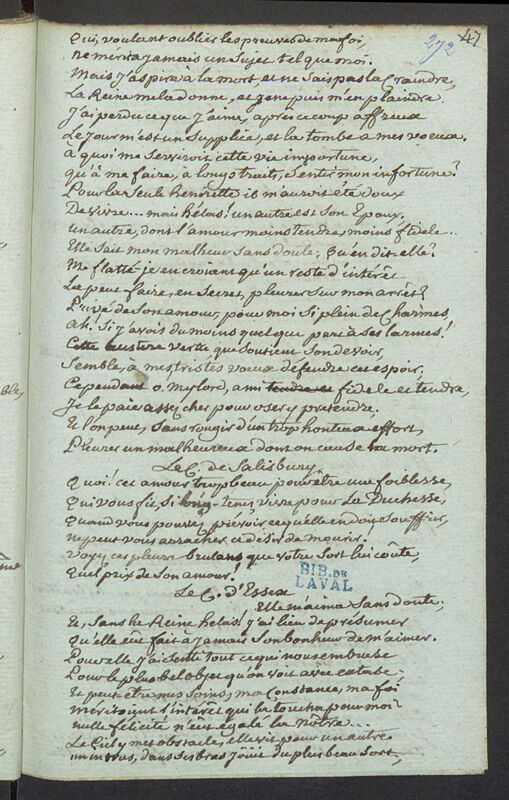 47
272
Qui, voulant oublier les preuves de ma foi,
ne mérita jamais un Sujet tel que moi.
Mais j'aspire à la mort, et ne sais pas la Craindre,
La Reine me la donne, et je ne puis m'en plaindre.
J'ai perdu ce que j'aime, après ce coup affreux
Le Jour m'est un Supplice, et la tombe a mes voeux.
à quoi me Serviroit cette vie importune,
qu'à me faire, à longs traits, Sentir mon infortune?
Pour la Seule henriette il m'auroit été doux
De vivre... mais hélas! un autre est Son Epoux.
un autre, dont l'amour moins tendre, moins fidele...
Elle Sait mon malheur Sans doute; Qu'en dit-elle?
Me flatté-je en croyant qu'un reste d'intérêt
La peut faire, en Secret, pleurer Sur mon arrêt?
Privé de Son amour, pour moi Si plein de Charmes,
Ah! Si j'avais du moins quelque part à Ses larmes!
Cette austere vertu que Soutient Son devoir,
Semble, à mes tristes voeux défendre cet espoir.
Cependant o. Mylord, ami fidele et tendre,
Je le paie assez cher pour oser y pretendre.
Et l'on peut, Sans rougir d'un trop honteux effort,
Pleurer un malheureux dont on cause la mort.
Le C. de Salisbury.
Quoi! cet amour trop beau pour être une foiblesse,
Qui vous fit Si long-tems vivre pour La Duchesse,
Quand vous pouvez prévoir ce qu'elle en doit Souffrir,
ne peut vous arracher ce désir de mourir.
Voyez ces pleurs brulans que votre Sort lui coûte,
Quel prix de Son amour!
BIB. DE
LAVAL
Le C. d'Essex
Elle m'aima Sans doute;
Et, Sans la Reine helas! j'ai lieu de présumer
Qu'elle eût fait à jamais Son bonheur de m'aimer.
Pour elle j'ai Senti tout ce qui nous embrase
Pour le plus bel objet qu'on voit avec extase:
Et peut-etre mes Soins, ma Constance, ma foi
méritoient l'intérêt qui la toucha pour moi?
nulle félicité n'eût égalé la nôtre...
Le Ciel y met obstacle, elle vit pour un autre
un intrus, dans Ses bras Jouit du plus beau Sort,